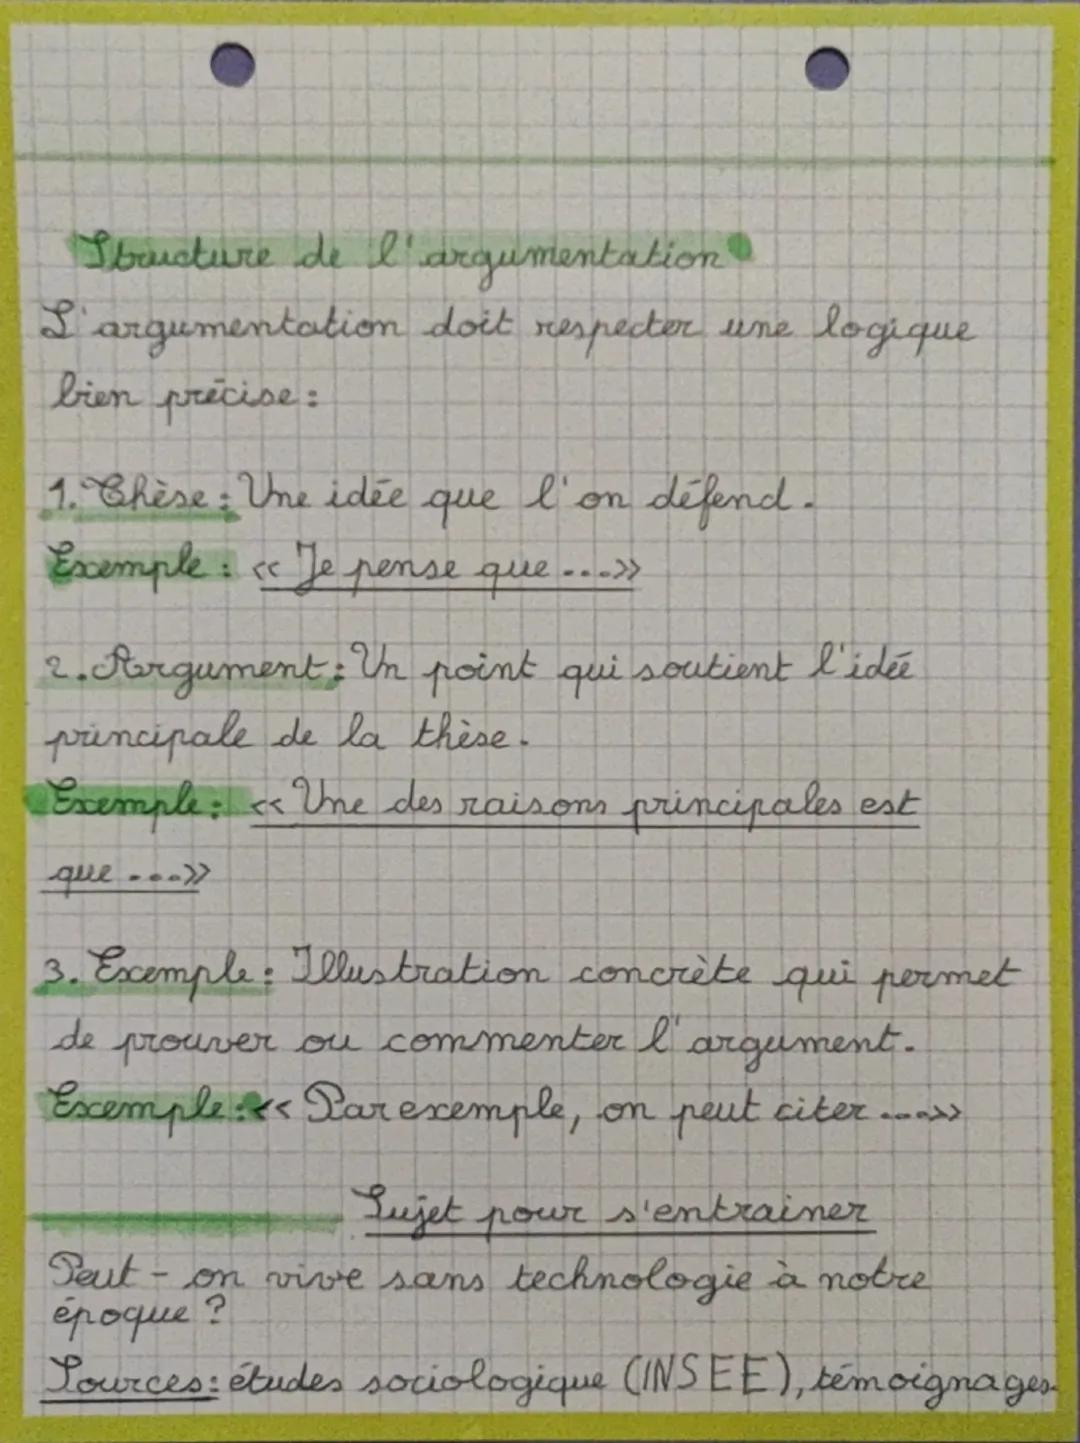 Structure de l'argumentation
L'argumentation doit respecter une logique
bien précise :
1. Thèse : Une idée que l'on défend.
Exemple : << Je pense que ....>>
2. Argument : Un point qui soutient l'idée
principale de la thèse.
Exemple : << Une des raisons principales est
que ....>>
3. Exemple : Illustration concrète qui permet
de prouver ou commenter l'argument.
Exemple : << Par exemple, on peut citer ....>>
Sujet pour s'entrainer
Peut-on vivre sans technologie à notre
époque ?
Sources : études sociologique (INSEE), témoignages.